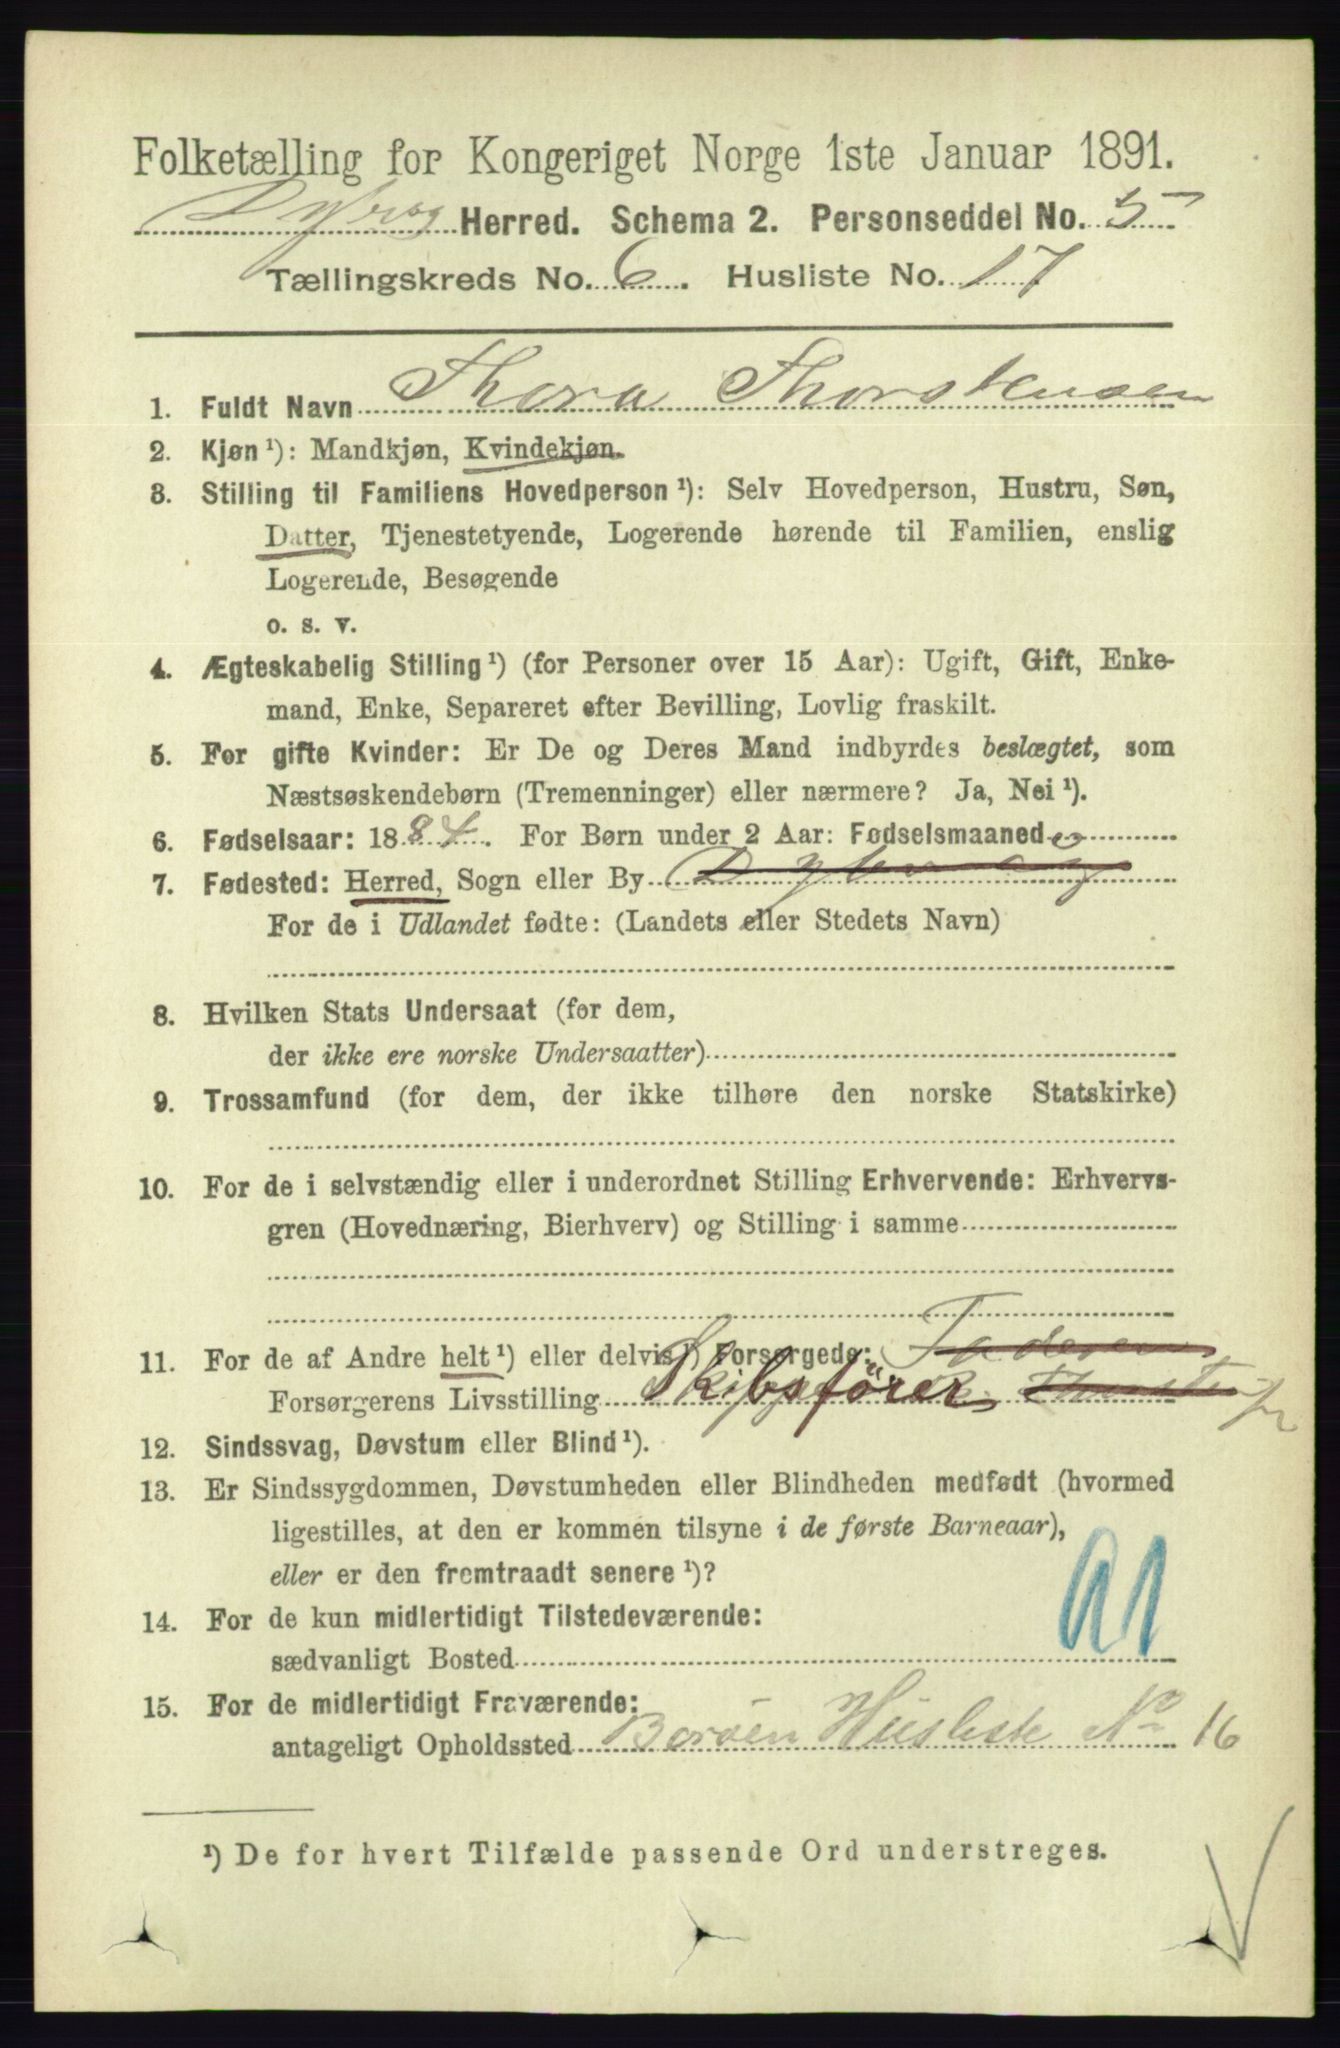 Folketælling for Kongeriget Norge 1ste Januar 1891.
Dybvåg Herred. Schema 2. Personseddel No. 5
Tællingskreds No. 6. Husliste No. 17
1. Fuldt Navn Thora Thorstensen
2. Kjøn ¹): Mandkjøn, Kvindekjøn.
3. Stilling til Familiens Hovedperson ¹): Selv Hovedperson, Hustru, Søn,
Datter, Tjenestetyende, Logerende hørende til Familien, enslig
Logerende, Besøgende
o. s. v.
4. Ægteskabelig Stilling ¹) (for Personer over 15 Aar): Ugift, Gift, Enke-
mand, Enke, Separeret efter Bevilling, Lovlig fraskilt.
5. For gifte Kvinder: Er De og Deres Mand indbyrdes beslægtet, som
Næstsøskendebørn (Tremenninger) eller nærmere? Ja, Nei ¹).
6. Fødselsaar: 1884. For Børn under 2 Aar: Fødselsmaaned
7. Fødested: Herred, Sogn eller By Dybvaag
For de i Udlandet fødte: (Landets eller Stedets Navn)
8. Hvilken Stats Undersaat (for dem,
der ikke ere norske Undersaatter)
9. Trossamfund (for dem, der ikke tilhøre den norske Statskirke)
10. For de i selvstændig eller i underordnet Stilling Erhvervende: Erhvervs-
gren (Hovednæring, Bierhverv) og Stilling i samme
11. For de af Andre helt ¹) eller delvis ¹) Forsørgede: Faderen
Forsørgerens Livsstilling Skibsfører
12. Sindssvag, Døvstum eller Blind ¹).
13. Er Sindssygdommen, Døvstumheden eller Blindheden medfødt (hvormed
ligestilles, at den er kommen tilsyne i de første Barneaar),
eller er den fremtraadt senere ¹)?
14. For de kun midlertidigt Tilstedeværende:
sædvanligt Bosted
15. For de midlertidigt Fraværende:
antageligt Opholdssted Borøen Husliste No 16
¹) De for hvert Tilfælde passende Ord understreges.